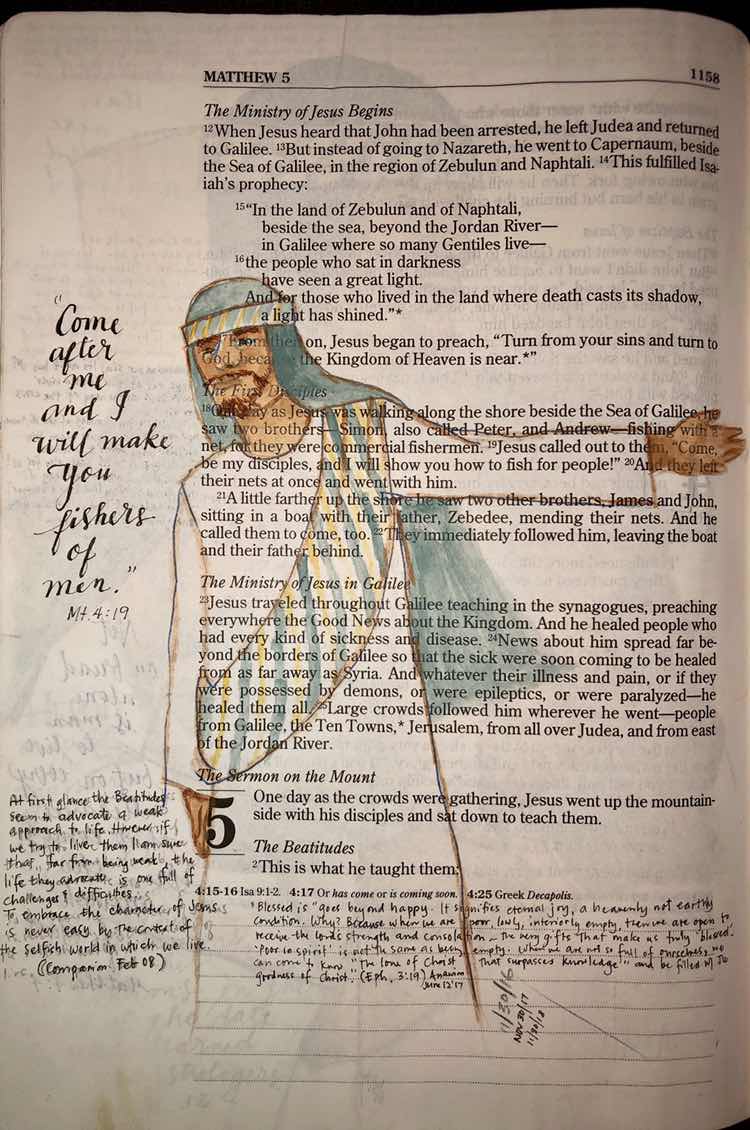 MATTHEW 5 1158
The Ministry of Jesus Begins
12When Jesus heard that John had been arrested, he left Judea and returned
to Galilee. 13But instead of going to Nazareth, he went to Capernaum, beside
the Sea of Galilee, in the region of Zebulun and Naphtali. 14This fulfilled Isa-
iah's prophecy:
15“In the land of Zebulun and of Naphtali,
beside the sea, beyond the Jordan River—
in Galilee where so many Gentiles live—
16the people who sat in darkness
have seen a great light.
And for those who lived in the land where death casts its shadow,
a light has shined.”*
From then on, Jesus began to preach, “Turn from your sins and turn to
God, because the Kingdom of Heaven is near.*”
The First Disciples
18One day as Jesus was walking along the shore beside the Sea of Galilee, he
saw two brothers—Simon, also called Peter, and Andrew—fishing with a
net, for they were commercial fishermen. 19Jesus called out to them, “Come,
be my disciples, and I will show you how to fish for people!” 20And they left
their nets at once and went with him.
21A little farther up the shore he saw two other brothers, James and John,
sitting in a boat with their father, Zebedee, mending their nets. And he
called them to come, too. 22They immediately followed him, leaving the boat
and their father behind.
The Ministry of Jesus in Galilee
23Jesus traveled throughout Galilee teaching in the synagogues, preaching
everywhere the Good News about the Kingdom. And he healed people who
had every kind of sickness and disease. 24News about him spread far be-
yond the borders of Galilee so that the sick were soon coming to be healed
from as far away as Syria. And whatever their illness and pain, or if they
were possessed by demons, or were epileptics, or were paralyzed—he
healed them all. 25Large crowds followed him wherever he went—people
from Galilee, the Ten Towns,* Jerusalem, from all over Judea, and from east
of the Jordan River.
The Sermon on the Mount
5 One day as the crowds were gathering, Jesus went up the mountain-
side with his disciples and sat down to teach them.
The Beatitudes
2This is what he taught them:
4:15-16 Isa 9:1-2. 4:17 Or has come or is coming soon. 4:25 Greek Decapolis.
“Come
after
me
and I
will make
you
fishers
of
men.”
Mt. 4:19
At first glance the Beatitudes
seem to advocate a weak
approach to life. However if
we try to live them I am sure
that, far from being weak, the
life they advocate is one full of
challenges & difficulties.
To embrace the character of Jesus
is never easy by the context of
the selfish world in which we live.
(Companion Feb 08)
"Blessed is" goes beyond happy. It signifies eternal joy, a heavenly not earthy
condition. Why? Because when we are poor, lowly, interiorly empty, then we are open to
receive the Lord's strength and consolation – the very gifts that make us truly 'blessed.'
'Poor in spirit' is not the same as being empty. When we are not so full of ourselves, we
can come to know "The love of Christ that surpasses knowledge" and be filled w/ the
goodness of Christ. (Eph. 3:19)
June 12 '17
11/30/16
NOV 30/17
11/30/18